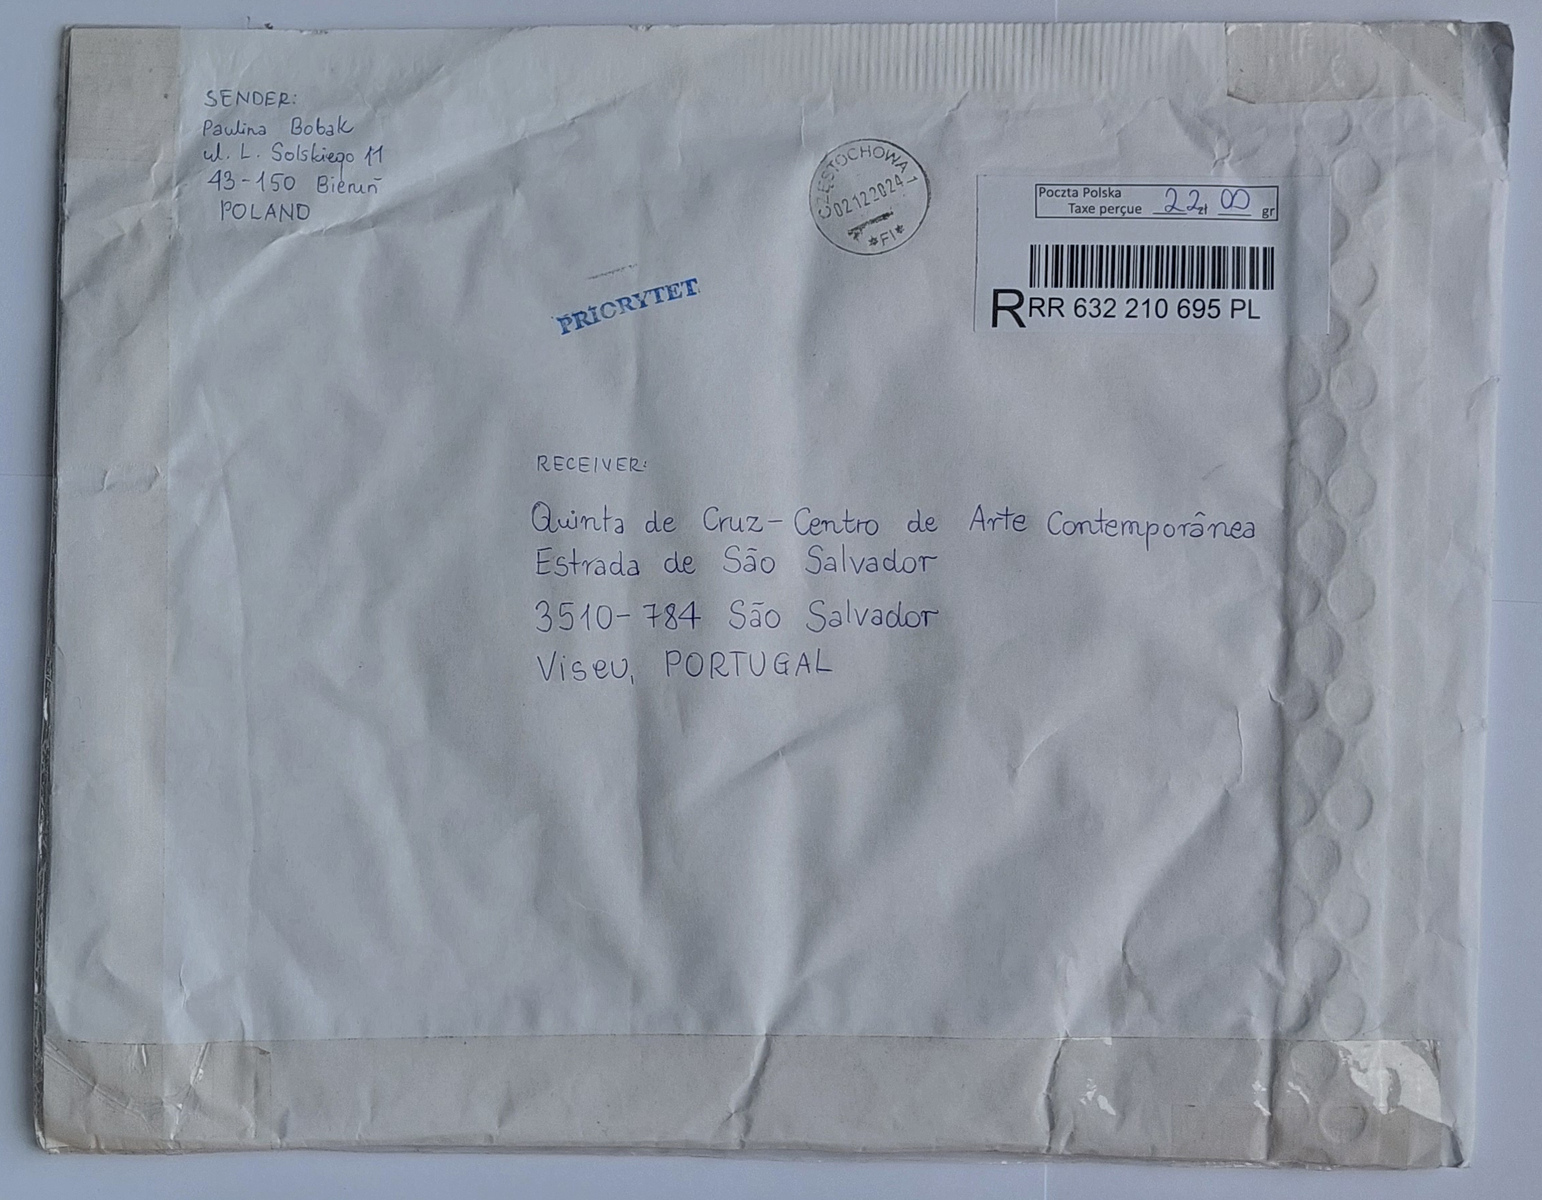 SENDER:
Paulina Bobak
ul. L. Solskiego 11
43-150 Bieruń
POLAND
CZĘSTOCHOWA 1
02122024
*FI*
Poczta Polska
Taxe perçue 22 zł 00 gr
R RR 632 210 695 PL
PRIORYTET
RECEIVER:
Quinta de Cruz-Centro de Arte Contemporânea
Estrada de São Salvador
3510-784 São Salvador
Viseu, PORTUGAL